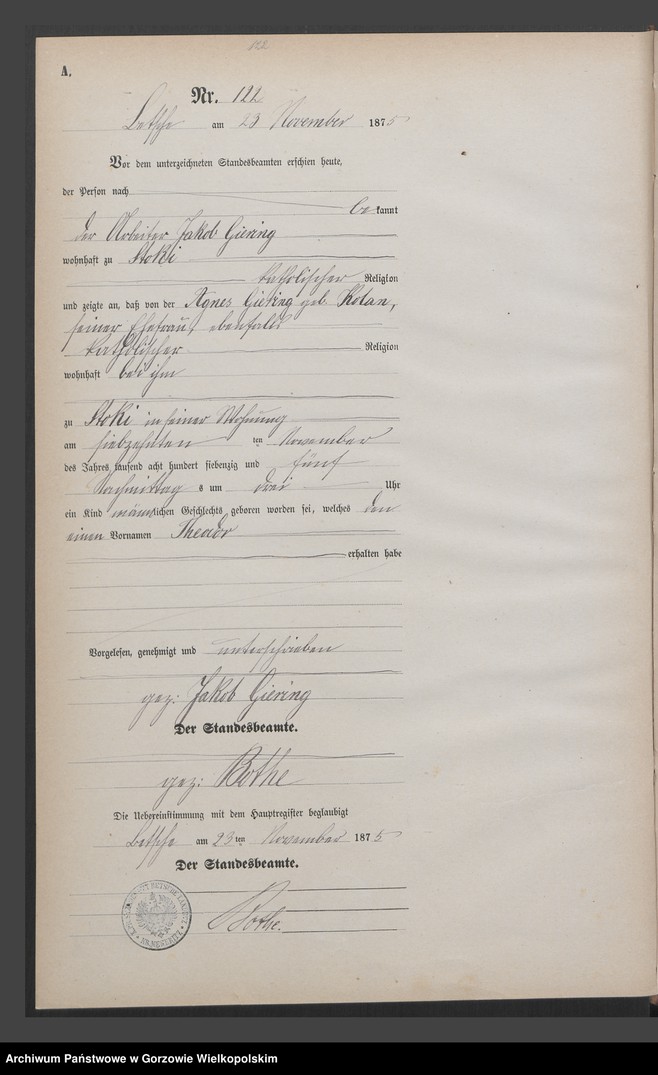 122
A.
Nr. 122
Betsche am 23 November 1875
Vor dem unterzeichneten Standesbeamten erschien heute,
der Person nach
bekannt
der Arbeiter Jakob Giering
wohnhaft zu Stoki
katholischer Religion
und zeigte an, daß von der Agnes Giering geb. Kolan,
seiner Ehefrau, ebenfalls
katholischer Religion
wohnhaft bei ihm
zu Stoki in seiner Wohnung
am siebzehnten ten November
des Jahres tausend acht hundert siebenzig und fünf
Nachmittags um drei Uhr
ein Kind männlichen Geschlechts geboren worden sei, welches den
einen Vornamen Theodor
erhalten habe
Vorgelesen, genehmigt und unterschrieben
gez: Jakob Giering
Der Standesbeamte.
gez: Bothe
Die Uebereinstimmung mit dem Hauptregister beglaubigt
Betsche am 23ten November 1875
Der Standesbeamte.
Bothe.
Archiwum Państwowe w Gorzowie Wielkopolskim